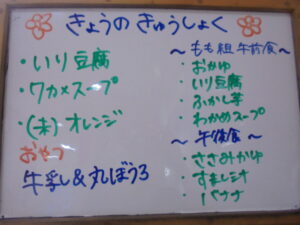 きょうの きゅうしょく
・いり豆腐
・ワカメスープ
・(未)オレンジ
おやつ
牛乳&丸ぼうろ
〜もも組 午前食〜
・おかゆ
・いり豆腐
・ふかし芋
・わかめスープ
〜午後食〜
・ささみかゆ
・すましミナ
・バナナ